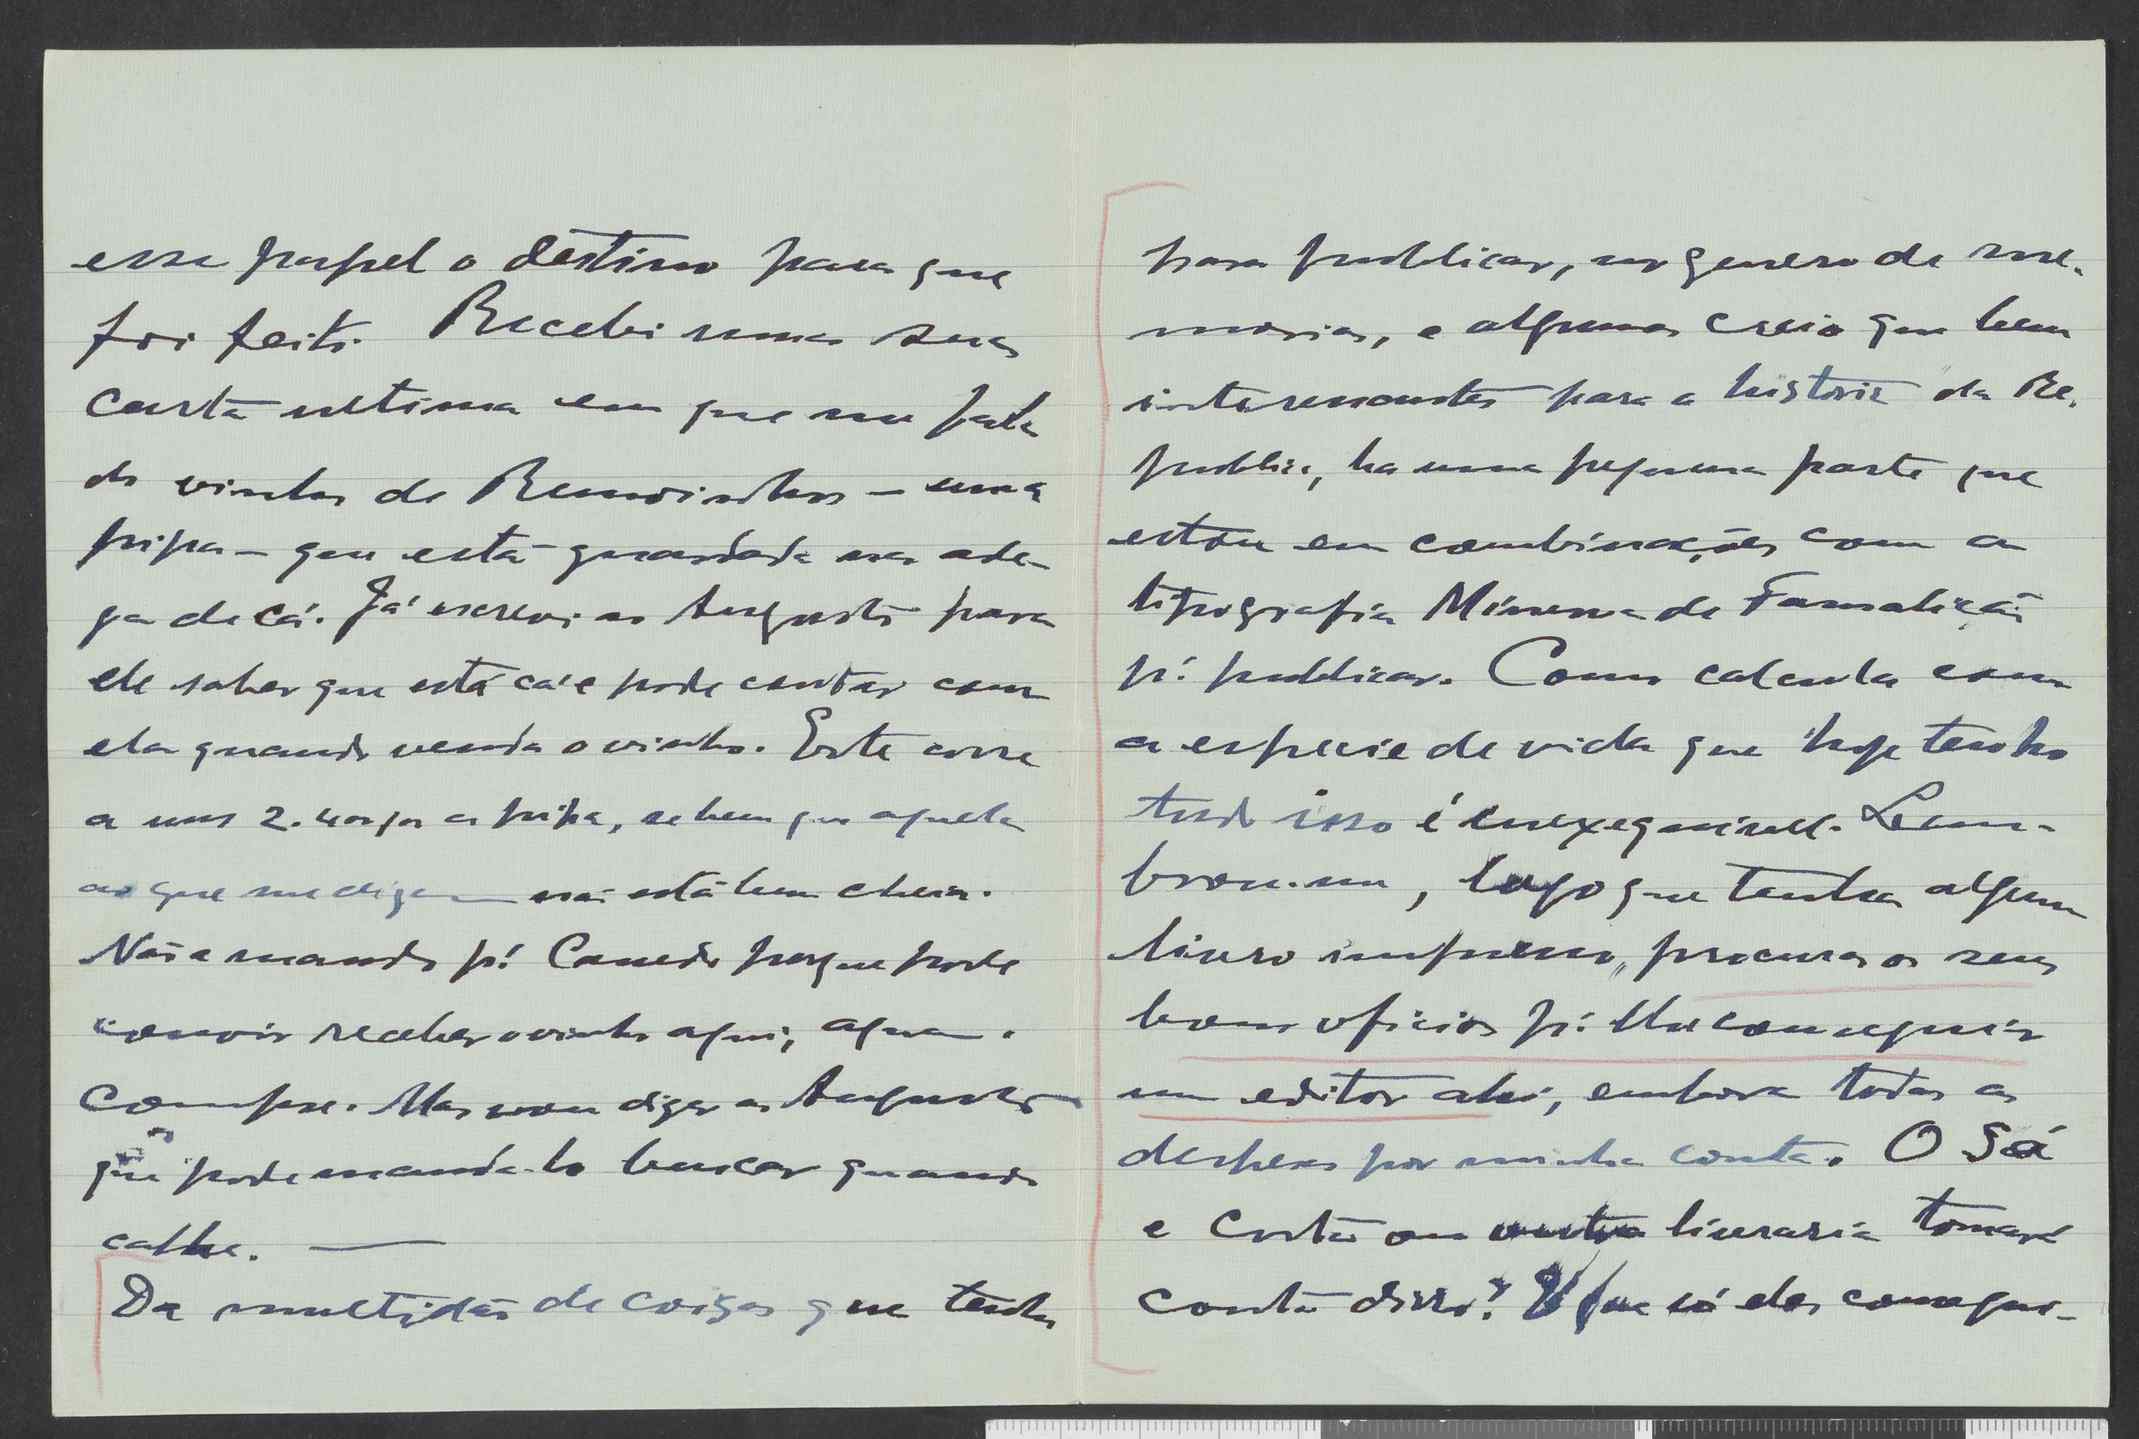 esse papel o destino para que
foi feito. Recebi uma sua
carta ultima em que me fala
do vinho de Remoinhos — uma
pipa — que está guardada na ade-
ga de cá. Já escrevi ao Augusto para
ele saber que está cá e pode contar com
ela quando venda o vinho. Este corre
a uns 2. a pipa, se bem que aquela
ao que me dizem não está bem cheia.
Não a mando pª Canedo porque pode
convir receber o vinho aqui, a quem
compre. Mas vou dizer ao Augusto
que pode manda-lo buscar quando
calhe. —
Da multidão de coisas que tenho
para publicar, no genero de me-
morias, e algumas creio que bem
interessantes para a historia da Re-
publica, ha uma pequena parte que
estou em combinações com a
tipografia Minerva de Famalicão
pª publicar. Como calcula com
a especie de vida que hoje tenho
tudo isso é inexequivel. Lem-
brou-me, logo que tenha algum
livro impresso, procurar os seus
bons oficios pª me conseguir
um editor ahi, embora todas as
despesas por minha conta. O Sá
e Costa ou outra livraria tomará
conta disso? que só eles consegui-